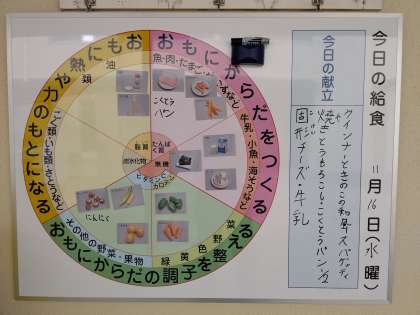 今日の給食
11月16日(水曜)
今日の献立
ウインナーときのこの和風スパゲッティ
焼きとうもろこし・こくとうパン1/2
固形チーズ・牛乳
おもにからだをつくる
魚・肉・たまご
牛乳・小魚・海そうなど
おもにからだの調子を整える
緑黄色野菜
その他の野菜・果物
おもに熱や力のもとになる
こく類・いも類・さとうなど
油類
脂質
たんぱく質
炭水化物
無機
ビタミン
カロテン
こくとう
パン
にんにく